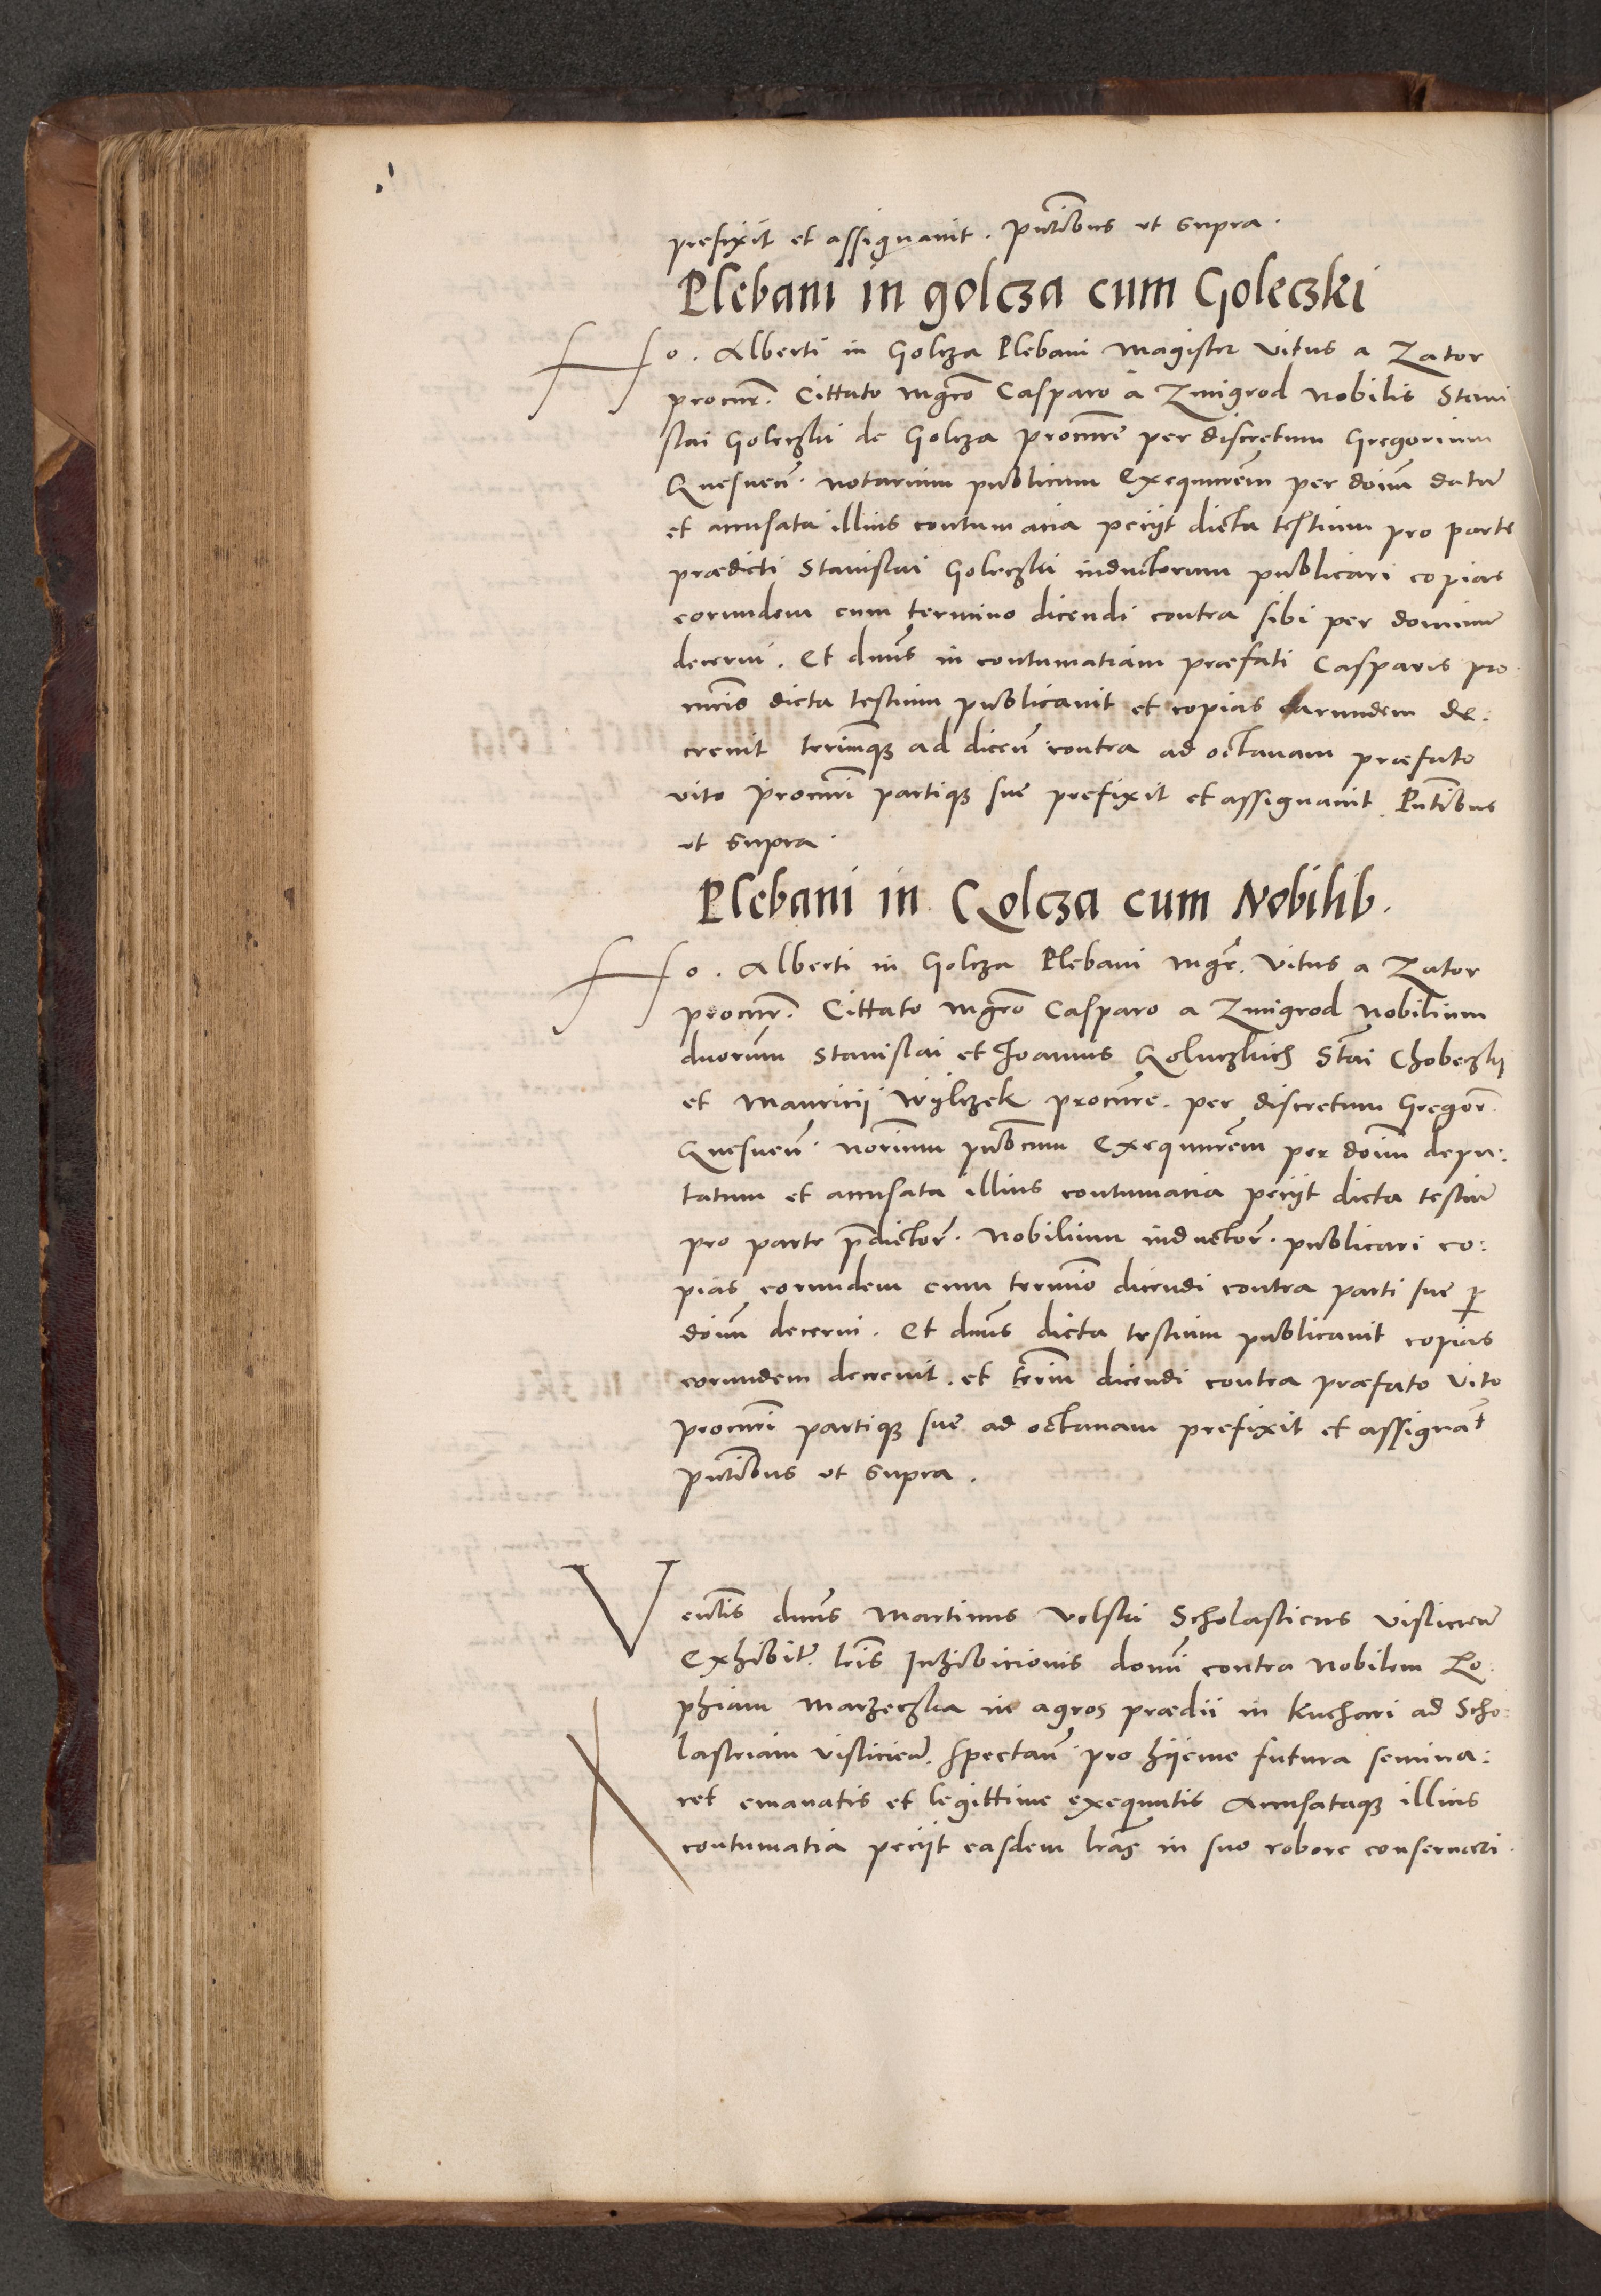 prefixit et assignavit. Pntibus ut supra.
Plebani in golcza cum Goleczki
Ho. Alberti in Golcza Plebani Magister Vitus a Zator
procur. Cittato mgro Casparo a Zmigrod Nobilis Stani
slai Goleczki de Golcza procure per discretum Gregorium
Gnesnen. notarium publicum Exequutrem per dominum datum
et accusata illius contumacia peciit dicta testium pro parte
prædicti Stanislai Goleczki inductorum publicari copias
eorundem cum termino dicendi contra sibi per dominum
decerni. Et dnus in contumatiam præfati Casparis pro
curis dicta testium publicavit et copias earundem de:
crevit terminumq ad dicen contra ad octavam præfato
vito procuri partiq sue prefixit et assignavit. Pntibus
ut supra.
Plebani in Golcza cum Nobilib.
Ho. Alberti in Golcza Plebani mgr. Vitus a Zator
procur. Cittato mgro Casparo a Zmigrod Nobilium
duorum Stanislai et Joannis Stai Chobeczky
et Mauricii Wylczek procure. per discretum Gregor.
Gnesnen. norium pubcum Exequutrem per doim depu:
tatum et accusata illius contumacia peciit dicta testium
pro parte pdictor. Nobilium inductor. publicari co:
pias eorundem cum termio dicendi contra parti sue p
doim decerni. Et dnus dicta testium publicavit copias
eorundem decrevit. et termin dicendi contra præfato Vito
procuri partiq sue ad octavam prefixit et assignat
pntibus ut supra.
Ventis dnus Martinus Volski Scholasticus Vislicien
Exhibit. lris Inhibicionis domi contra Nobilem Zo:
phiam Marzeczka ne agros prædii in Kuchari ad Scho:
lastriam vislicien. spectan. pro hÿeme futura semina:
ret emanatis et legittime exequutis Accusataq illius
contumatia peciit easdem lras in suo robore conservari.